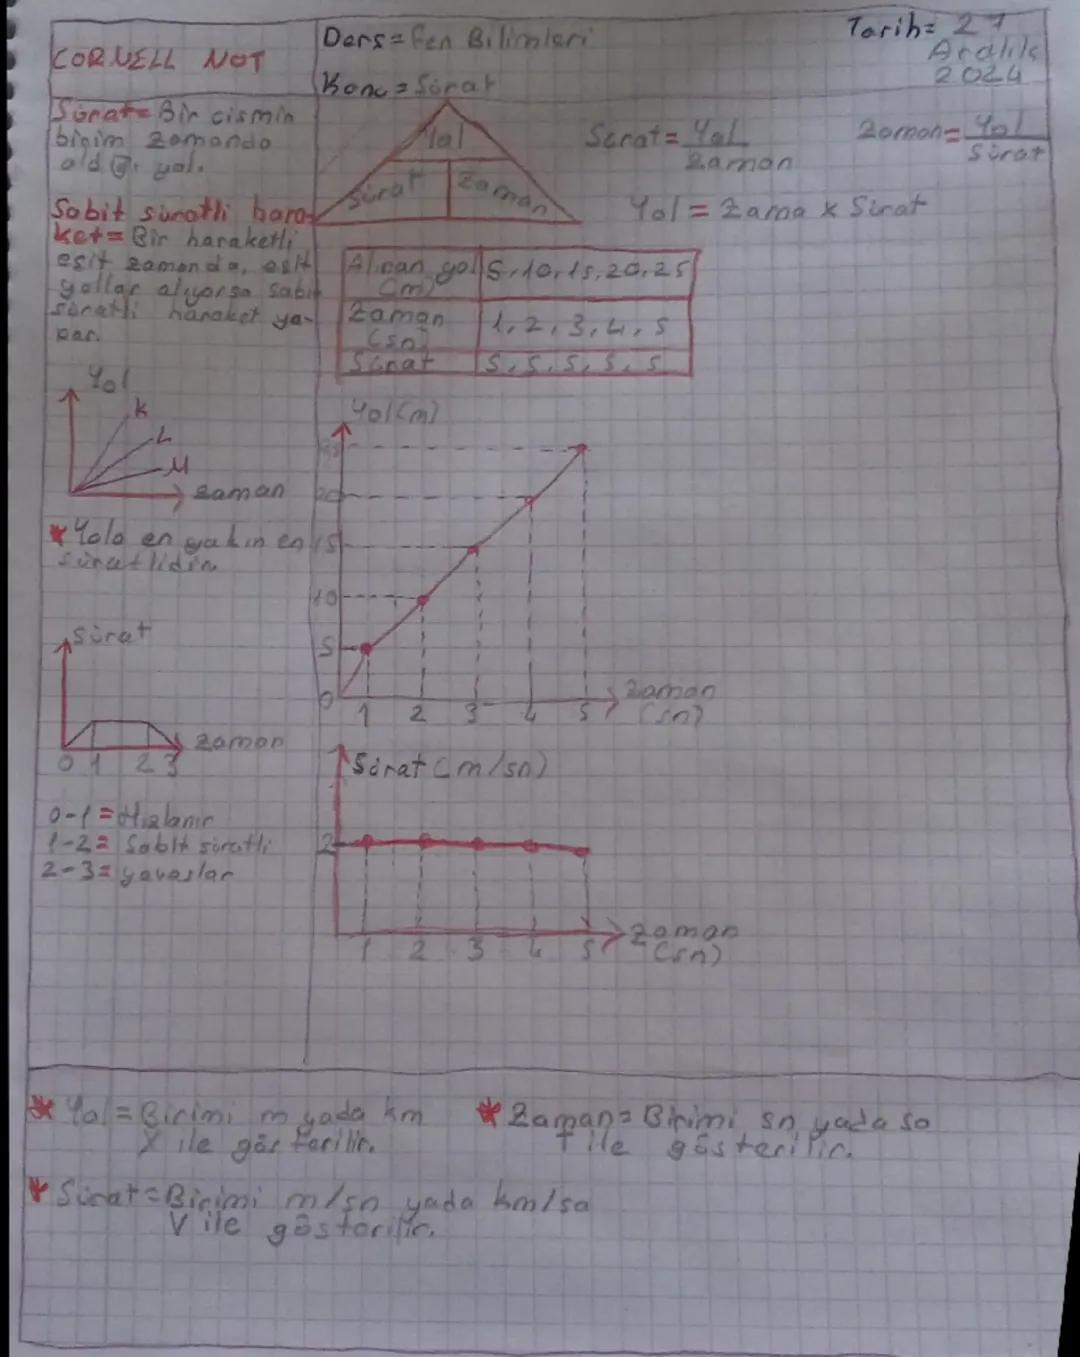 CORNELL NOT
Ders = Fen Bilimleri
Konu = Sürat
Tarih = 27
Aralık
2024
Sürat = Bir cismin
birim zamanda
aldığı yol.
Sabit süratli hara-
ket = Bir haraketli
eşit zamanda, eşit
yollar alıyorsa sabit
süratli haraket ya-
par.
Yol
K
L
M
zaman
* Yola en yakın en
süratlidir.
Sürat
zaman
0 1 2 3
0-1 = Hızlanır
1-2 = Sabit süratli
2-3 = yavaşlar
Yol
Sürat Zaman
Sürat = Yol
Zaman
Zaman = Yol
Sürat
Yol = Zama x Sürat
Alınan yol 5, 10, 15, 20, 25
(m)
Zaman 1, 2, 3, 4, 5
(sn)
Sürat 5, 5, 5, 5, 5
Yol (m)
25
20
15
10
5
0
1 2 3 4 5
Zaman
(sn)
Sürat (m/sn)
2
1 2 3 4 5
Zaman
(sn)
* Yol = Birimi m yada km
X ile gösterilir.
* Zaman = Birimi sn yada sa
T ile gösterilir.
* Sürat = Birimi m/sn yada km/sa
V ile gösterilir.